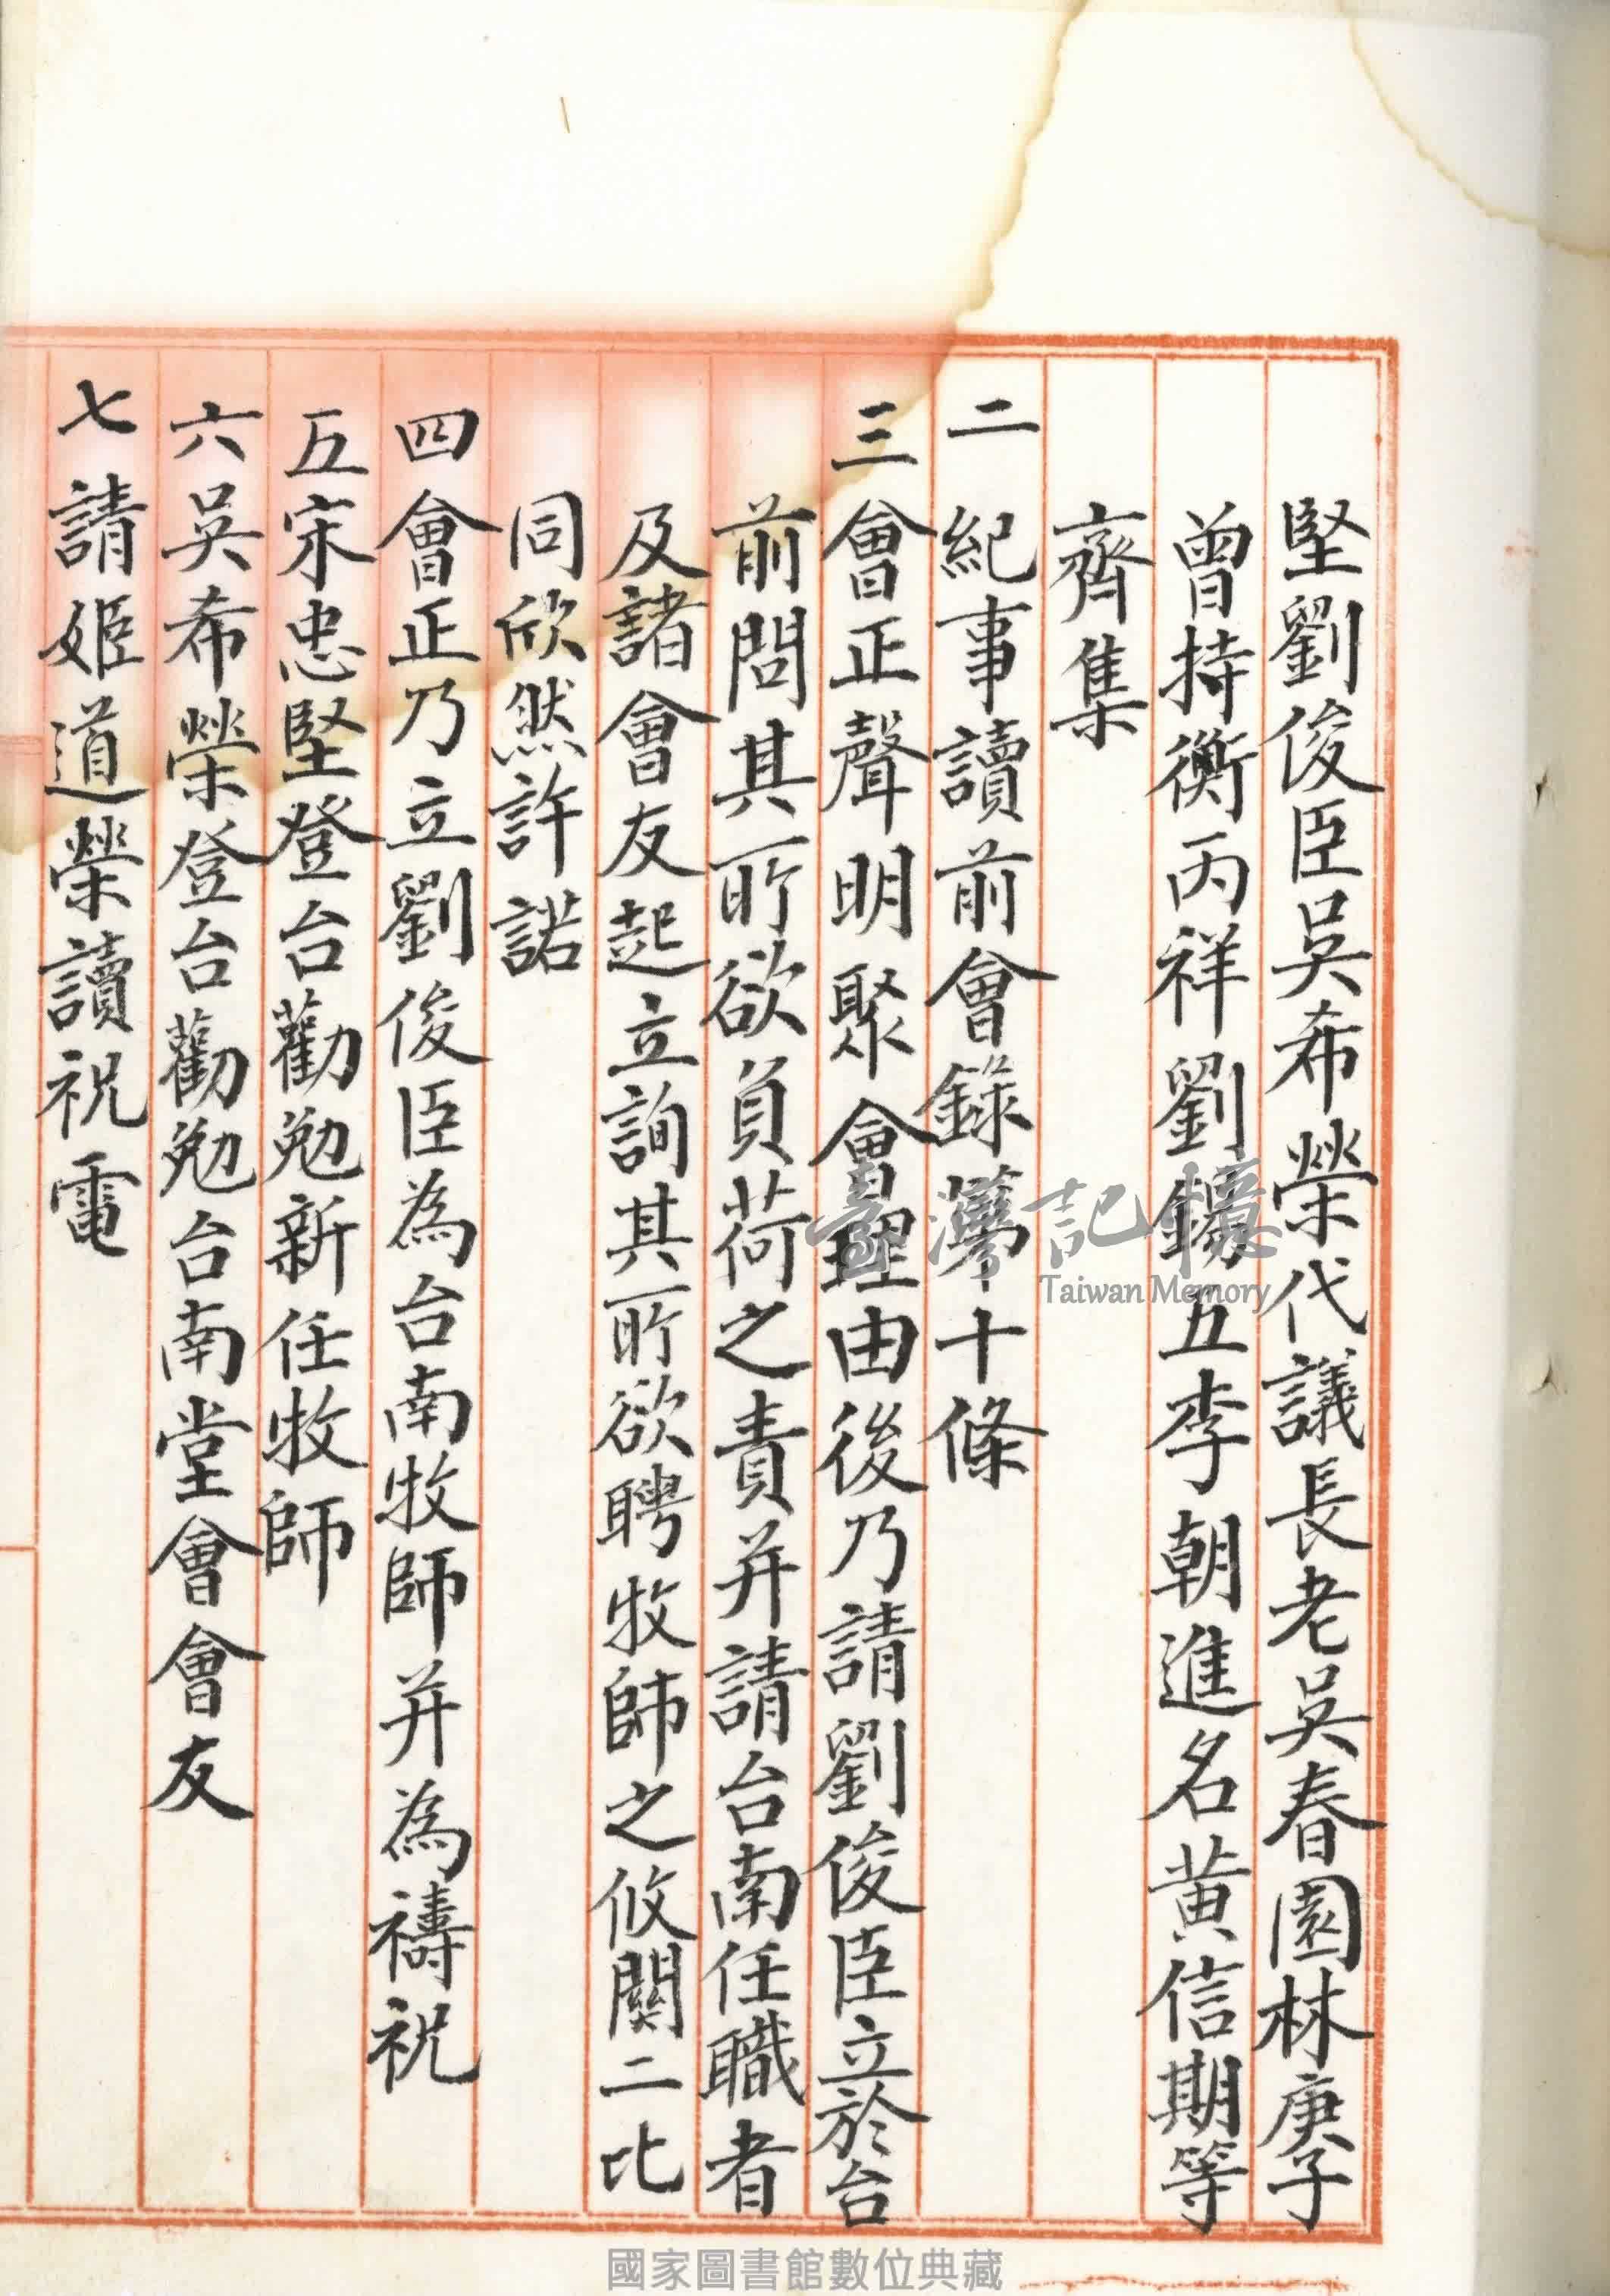 堅劉俊臣吳希榮代議長老吳春園林庚子
曾持衡丙祥劉錫五李朝進名黄信期等
齊集
二 紀事讀前會錄第十條
三 會正聲明聚會理由後乃請劉俊臣立於台
前問其所欲負荷之責并請台南任職者
及諸會友起立詢其所欲聘牧師之攸關二比
同欣然許諾
四 會正乃立劉俊臣為台南牧師并為禱祝
五 宋忠堅登台勸勉新任牧師
六 吳希榮登台勸勉台南堂會會友
七 請姬道榮讀祝電
臺灣記憶
Taiwan Memory
國家圖書館數位典藏